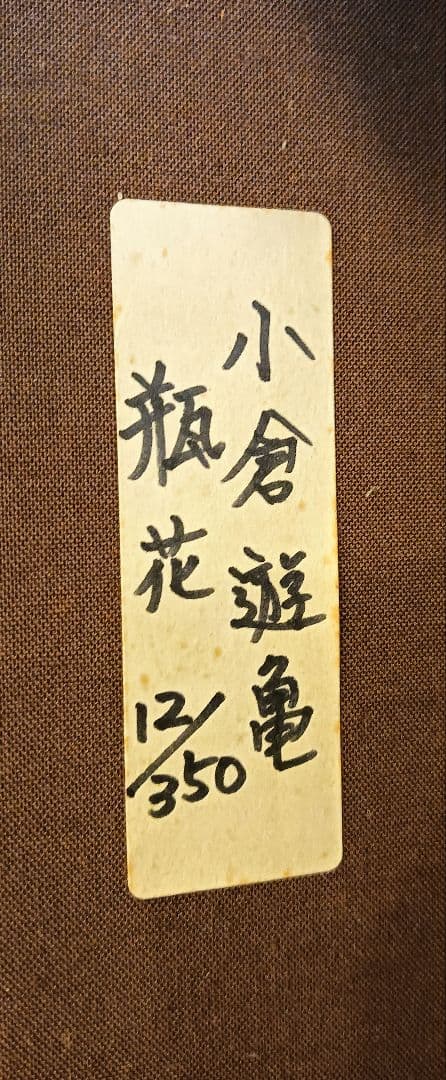 小倉遊亀
瓶花
12/350